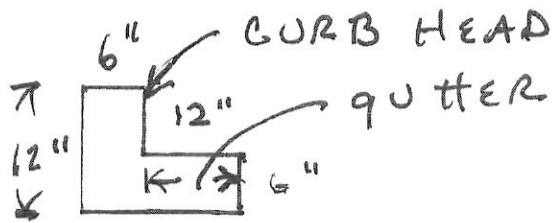 6" CURB HEAD
12" GUTTER
12" 6"